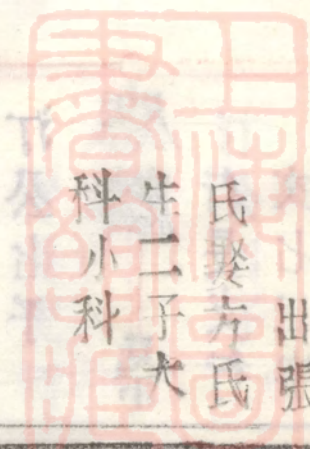 出張
氏娶方氏
生二子大
科小科